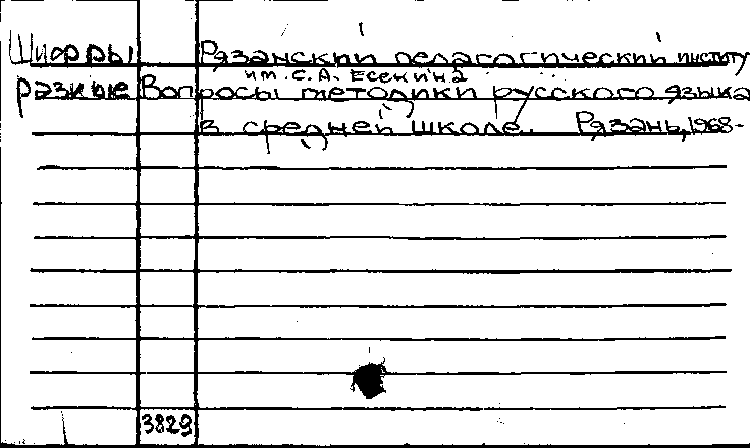 Шифры Рязанский педагогический институт
им. С.А. Есенина
разные Вопросы методики русского языка
в средней школе. Рязань, 1968-
3829